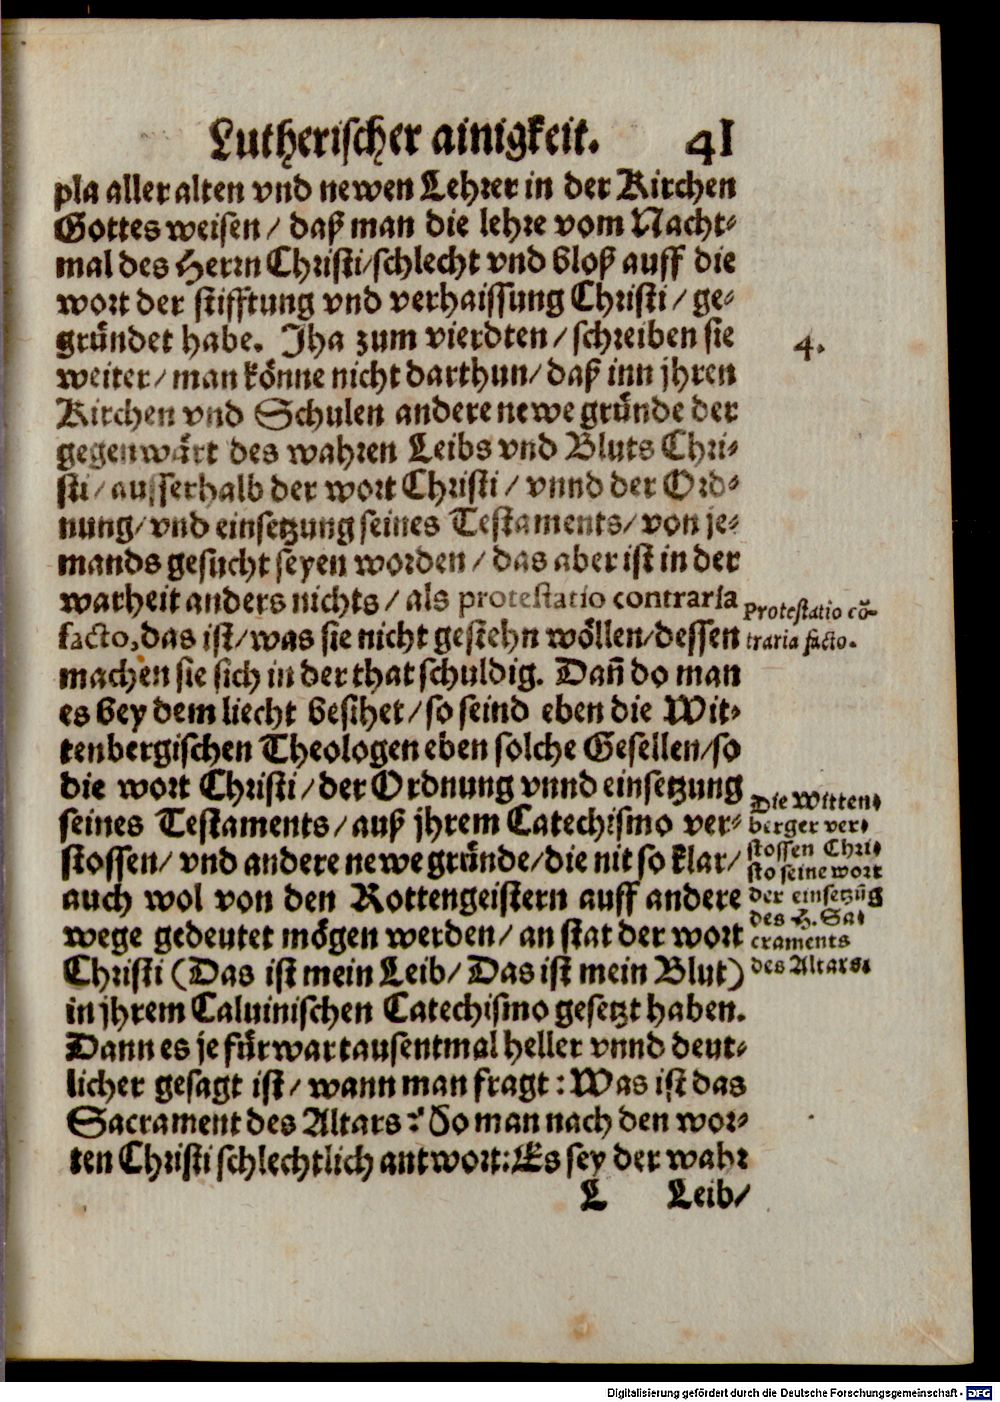 Lutherischer ainigkeit. 41
pla aller alten vnd newen Lehrer in der Kirchen
Gottes weisen / daß man die lehre vom Nacht-
mal des Herrn Christi/schlecht vnd bloß auff die
wort der stifftung vnd verhaissung Christi / ge-
gründet habe. Jha zum vierdten / schreiben sie
4.
weiter / man könne nicht darthun / daß inn jhren
Kirchen vnd Schulen andere newe gründe der
gegenwärt des wahren Leibs vnd Bluts Chri-
sti / ausserhalb der wort Christi / vnnd der Ord-
nung/ vnd einsetzung seines Testaments/ von je-
mands gesucht seyen worden / das aber ist in der
warheit anders nichts / als protestatio contraria
facto, das ist/ was sie nicht gestehn wöllen/dessen
Protestatio cō-
traria facto.
machen sie sich in der that schuldig. Dañ do man
es bey dem liecht besihet / so seind eben die Wit-
tenbergischen Theologen eben solche Gesellen/so
die wort Christi / der Ordnung vnnd einsetzung
seines Testaments / auß jhrem Catechismo ver-
stossen/ vnd andere newe gründe/die nit so klar/
auch wol von den Rottengeistern auff andere
wege gedeutet mögen werden/ an stat der wort
Christi (Das ist mein Leib/ Das ist mein Blut)
Die Witten-
berger ver-
stossen Chri-
sto seine wort
der einsetzūg
des H. Sa-
craments
des Altars.
in jhrem Caluinischen Catechismo gesetzt haben.
Dann es je fürwar tausentmal heller vnnd deut-
licher gesagt ist/ wann man fragt: Was ist das
Sacrament des Altars? So man nach den wor-
ten Christi schlechtlich antwort: Es sey der wahr
L Leib/
Digitalisierung gefördert durch die Deutsche Forschungsgemeinschaft - DFG